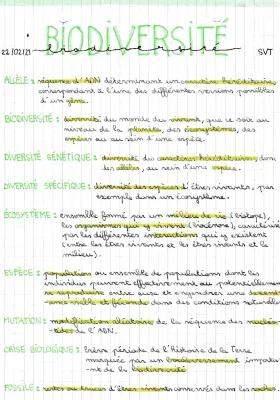 BIODIVERSITÉ
22/02/21 biodiversité SVT
ALLÈLE : séquence d'ADN déterminant un caractère héréditaire,
correspondant à l'une des différentes versions possibles
d'un gène.
BIODIVERSITÉ : diversité du monde du vivant, que ce soit au
niveau de la planète, des écosystèmes, des
espèces ou au sein d'une espèce.
DIVERSITÉ GÉNÉTIQUE : diversité du caractères héréditaires, dans
des allèles, au sein d'une espèce.
DIVERSITÉ SPÉCIFIQUE : diversité des espèces d'êtres vivants, par
exemple dans un écosystème.
ÉCOSYSTÈME : ensemble formé par un milieu de vie (biotope),
les organismes qui y vivent (biocénose), caractérisé
par les différentes interactions qui y existent
(entre les êtres vivants et les êtres vivants et le
milieu).
ESPÈCE : population ou ensemble de populations dont les
individus peuvent effectivement ou potentiellement
se reproduire entre eux et engendrer une descend
-ance viable et féconde dans des conditions naturelles
MUTATION : modification aléatoire de la séquence des nucléo
-tides de l'ADN.
CRISE BIOLOGIQUE : brève période de l'Histoire de la Terre
marquée par un bouleversement importa
-nt de la biodiversité
FOSSILE : restes ou traces d'êtres vivants conservés dans les roches